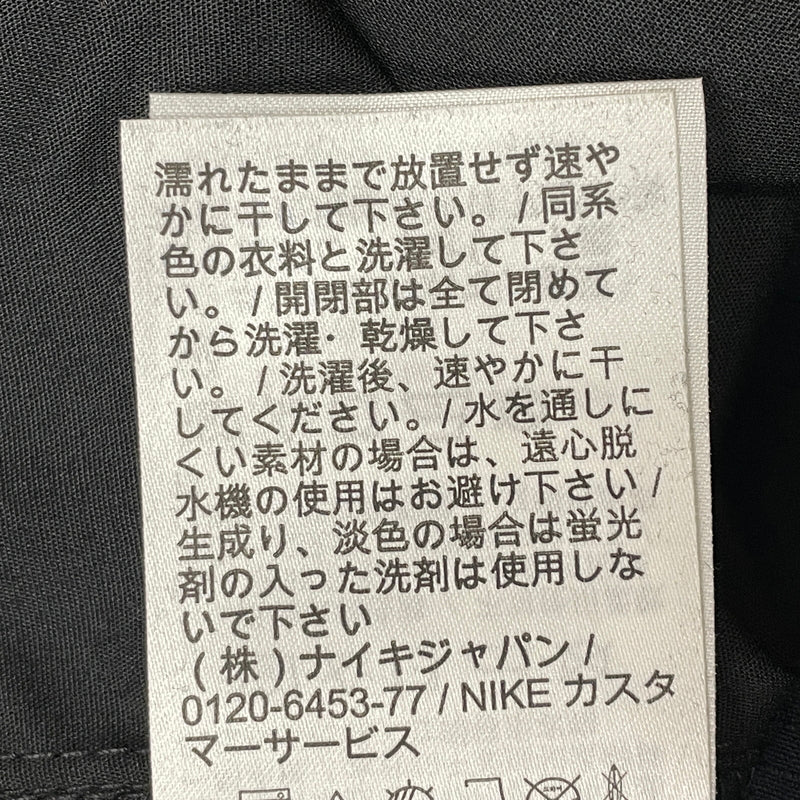 濡れたままで放置せず速や
かに干して下さい。/同系
色の衣料と洗濯して下さ
い。/開閉部は全て閉めて
から洗濯・乾燥して下さ
い。/洗濯後、速やかに干
してください。/水を通しに
くい素材の場合は、遠心脱
水機の使用はお避け下さい/
生成り、淡色の場合は蛍光
剤の入った洗剤は使用しな
いで下さい
(株)ナイキジャパン/
0120-6453-77/NIKE カスタ
マーサービス